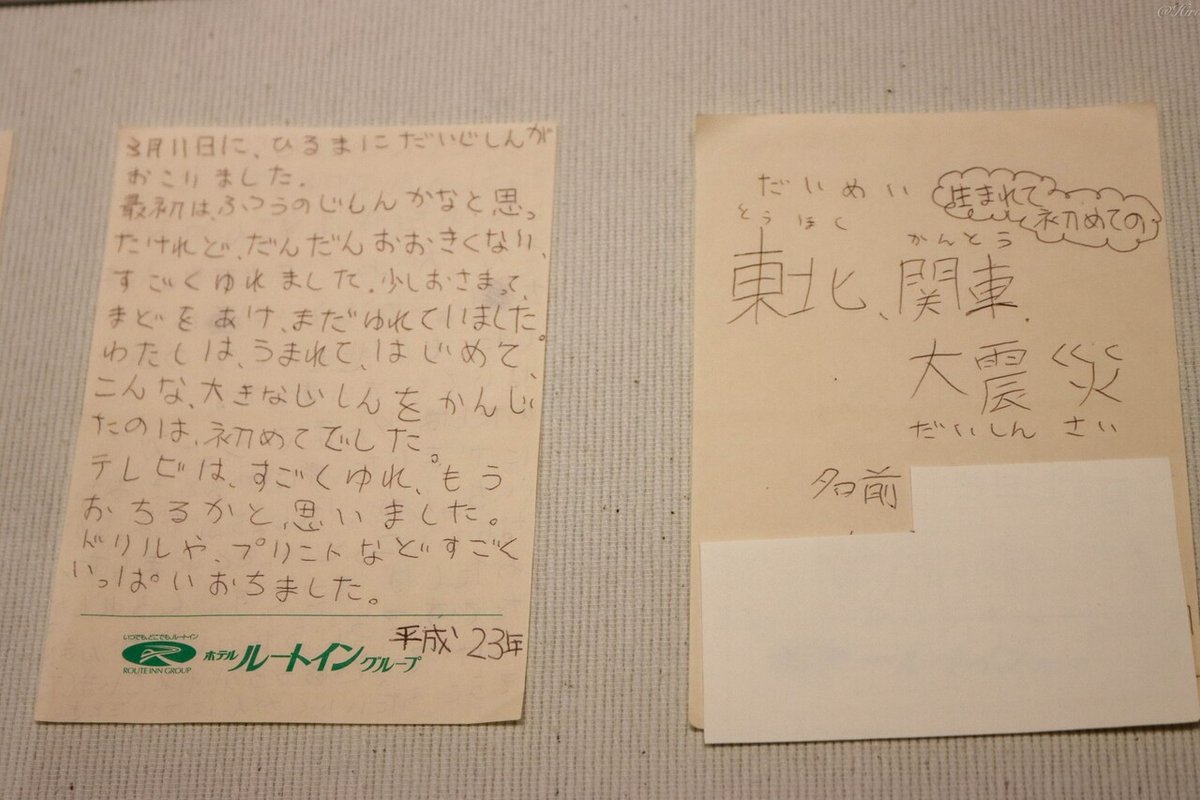 3月11日に、ひるまにだいじしんが
おこりました。
最初は、ふつうのじしんかなと思っ
たけれど、だんだんおおきくなり、
すごくゆれました。少しおさまって、
まどをあけ、まだゆれていました。
わたしは、うまれて、はじめて、
こんな、大きなじしんをかんじ
たのは、初めてでした。
テレビは、すごくゆれ、もう
おちるかと、思いました。
ドリルや、プリントなどすごく
いっぱいおちました。
平成23年
いつでも、どこでも、ルートイン
ROUTE INN GROUP
ホテルルートイングループ
だいめい
生まれて
初めての
とうほく
かんとう
東北、関東.
大震災
だいしんさい
名前